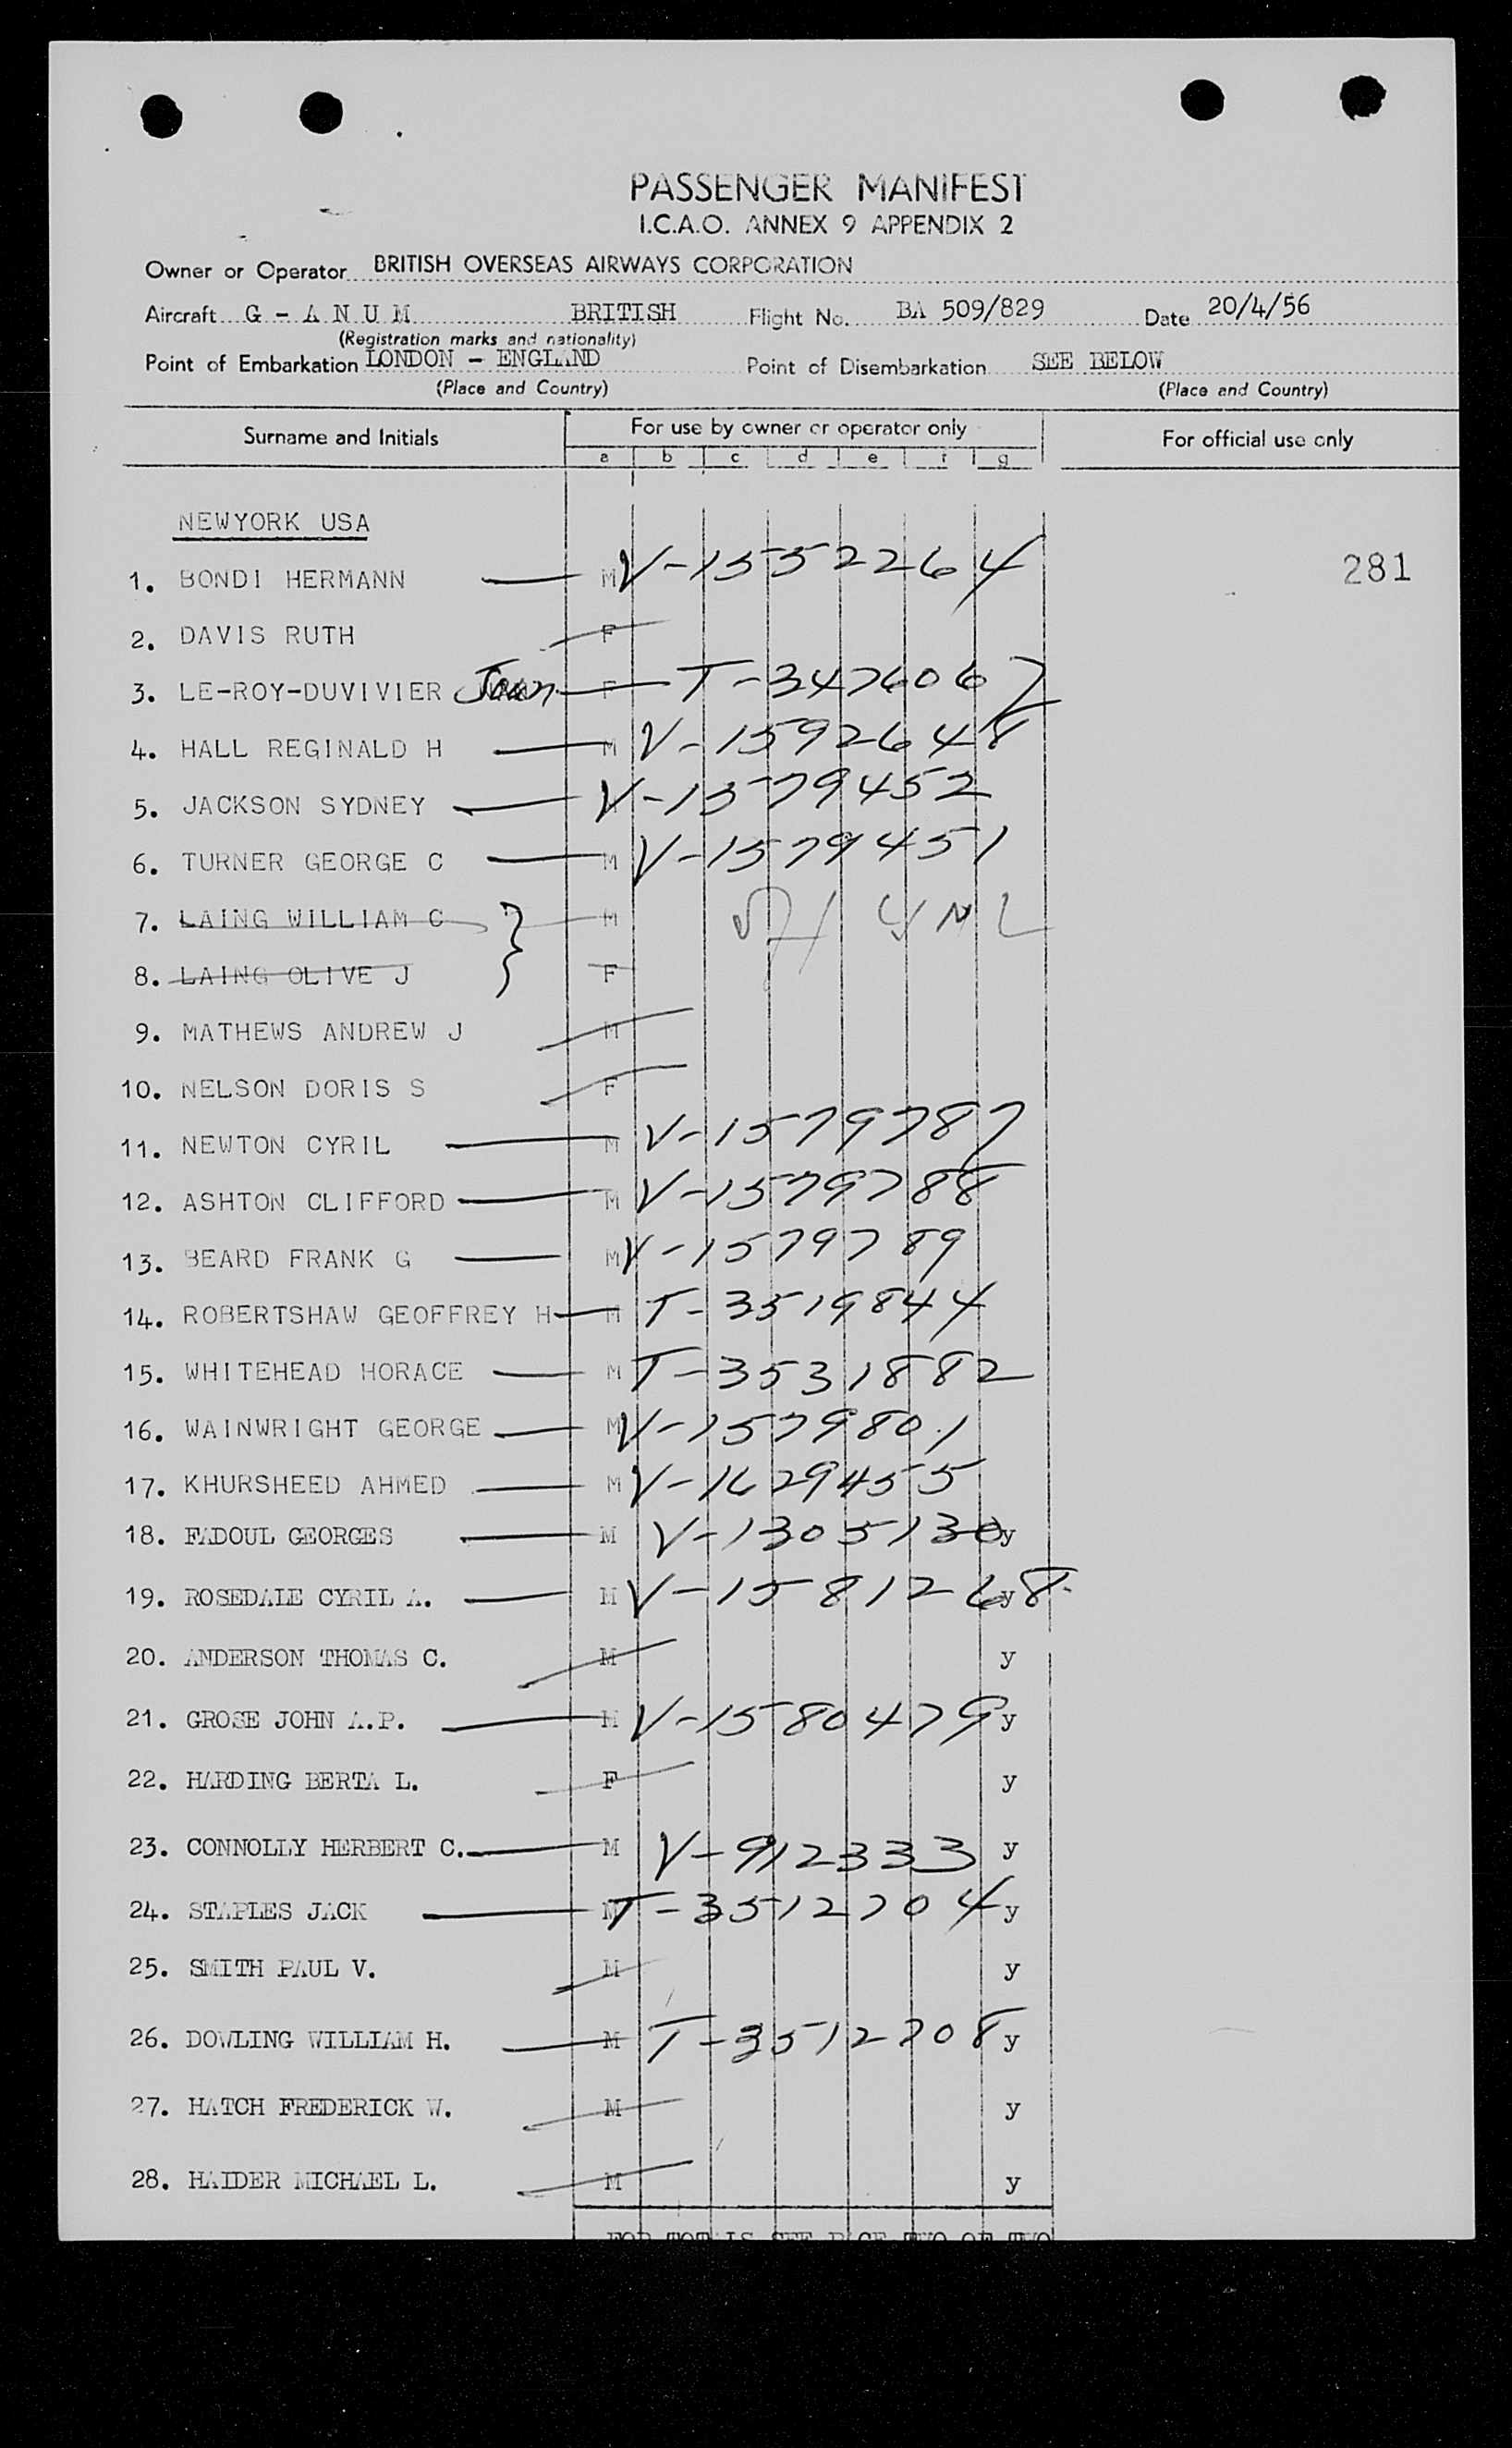 PASSENGER MANIFEST
I.C.A.O. ANNEX 9 APPENDIX 2
Owner or Operator BRITISH OVERSEAS AIRWAYS CORPORATION
Aircraft G - A N U M BRITISH Flight No. BA 509/829 Date 20/4/56
(Registration marks and nationality)
Point of Embarkation LONDON - ENGLAND Point of Disembarkation SEE BELOW
(Place and Country) (Place and Country)
Surname and Initials For use by owner or operator only For official use only
a b c d e f g
NEWYORK USA
281
1. BONDI HERMANN M V-1552264
2. DAVIS RUTH F
3. LE-ROY-DUVIVIER Joan F T-3476067
4. HALL REGINALD H M V-1592648
5. JACKSON SYDNEY V-1579452
6. TURNER GEORGE C M V-1579451
7. LAING WILLIAM C M
8. LAING OLIVE J F
9. MATHEWS ANDREW J M
10. NELSON DORIS S F
11. NEWTON CYRIL M V-1579787
12. ASHTON CLIFFORD M V-1579788
13. BEARD FRANK G M V-1579789
14. ROBERTSHAW GEOFFREY H M T-3519844
15. WHITEHEAD HORACE M T-3531882
16. WAINWRIGHT GEORGE M V-1579801
17. KHURSHEED AHMED M V-1629455
18. FADOUL GEORGES M V-1305130 y
19. ROSEDALE CYRIL A. M V-1581268 y
20. ANDERSON THOMAS C. M y
21. GROSE JOHN A.P. M V-1580479 y
22. HARDING BERTA L. F y
23. CONNOLLY HERBERT C. M V-912333 y
24. STAPLES JACK M T-3512704 y
25. SMITH PAUL V. M y
26. DOWLING WILLIAM H. M T-3512708 y
27. HATCH FREDERICK W. M y
28. HAIDER MICHAEL L. M y
FOR TOTALS SEE PAGE TWO OF TWO